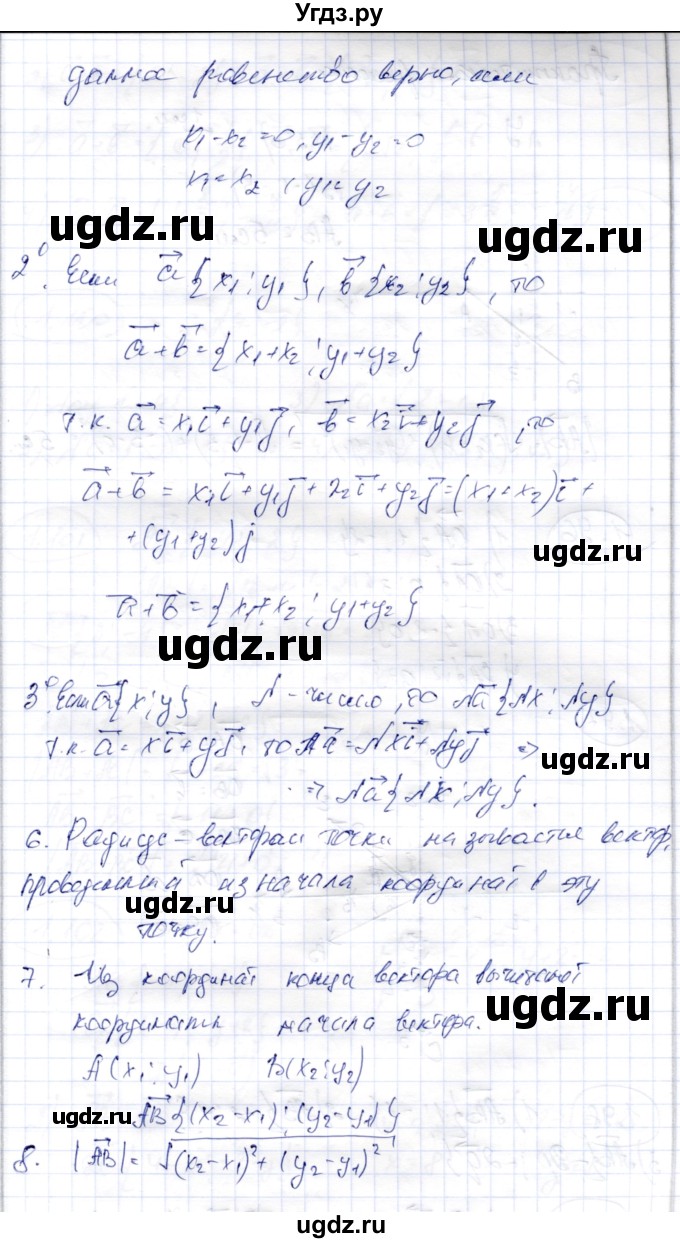 Угдз.ру
данное равенство верно, если
x₁-x₂=0, y₁-y₂=0
x₁=x₂, y₁=y₂
ugdz.ru
ugdz.ru
2⁰. Если a⃗{x₁; y₁}, b⃗{x₂; y₂}, то
a⃗+b⃗={x₁+x₂; y₁+y₂}
т.к. a⃗=x₁i⃗+y₁j⃗, b⃗=x₂i⃗+y₂j⃗, то
a⃗+b⃗=x₁i⃗+y₁j⃗+x₂i⃗+y₂j⃗=(x₁+x₂)i⃗+
+(y₁+y₂)j⃗
ugdz.ru
a⃗+b⃗={x₁+x₂; y₁+y₂}
ugdz.ru
3⁰. Если a⃗{x; y}, λ - число, то λa⃗{λx; λy}
т.к. a⃗=xi⃗+yj⃗, то λa⃗=λxi⃗+λyj⃗ ⇒
ugdz.ru
⇒ λa⃗{λx; λy}.
6. Радиус-вектором точки называется вектор,
проведенный из начала координат в эту
ugdz.ru
точку.
7. Из координат конца вектора вычитают
ugdz.ru
координаты начала вектора.
A(x₁; y₁) B(x₂; y₂)
ugdz.ru
AB⃗{(x₂-x₁); (y₂-y₁)}
8. |AB⃗|=√(x₂-x₁)²+(y₂-y₁)²
ugdz.ru
ugdz.ru